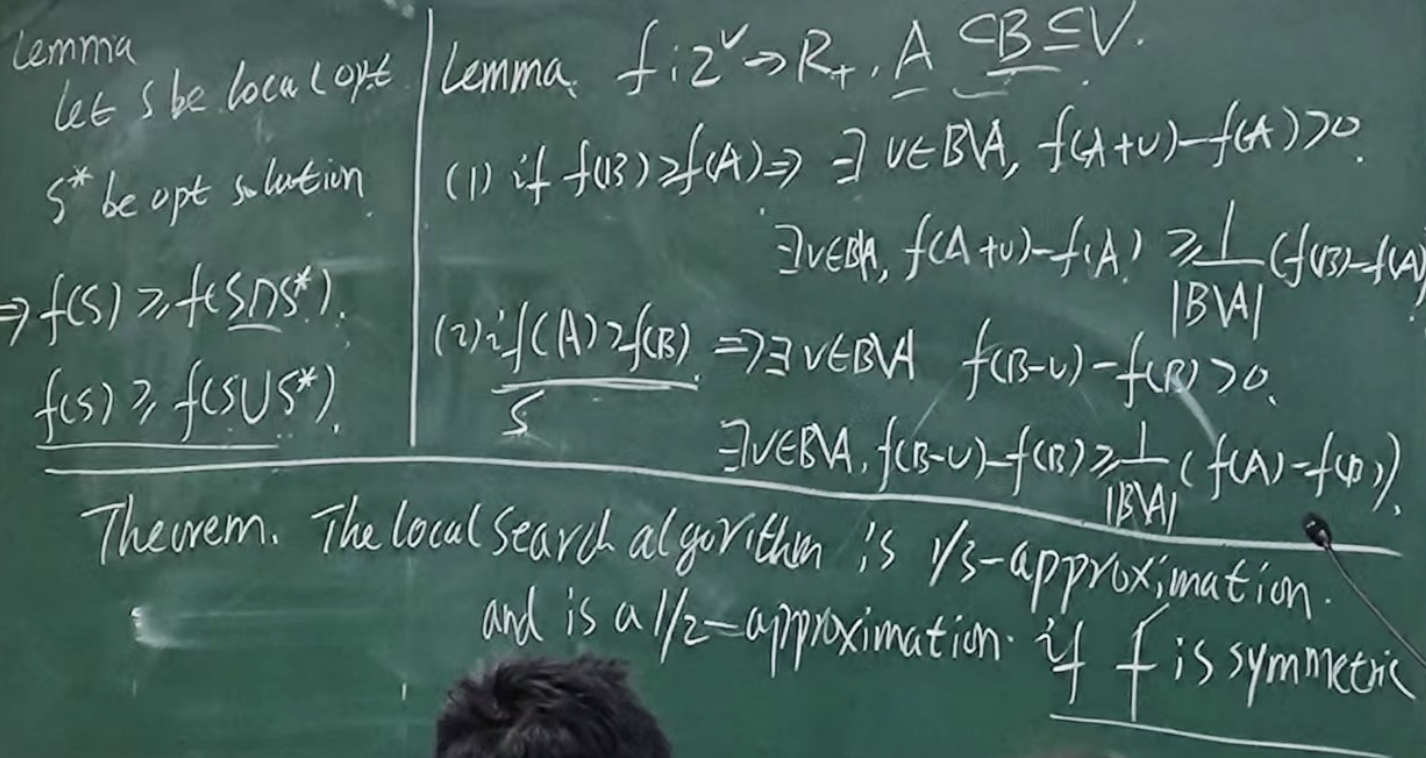 Lemma
let S be local opt
S* be opt solution
⇒ f(S) ≥ f(S∩S*).
f(S) ≥ f(S∪S*).
Lemma. f: 2^V → R₊, A ⊂ B ⊆ V.
(1) if f(B) ≥ f(A) ⇒ ∃ v∈B\A, f(A+v) − f(A) > 0.
∃v∈B\A, f(A+v) − f(A) ≥ 1/|B\A| (f(B) − f(A)
(2) if f(A) > f(B) ⇒ ∃ v∈B\A f(B−v) − f(B) > 0.
S
∃v∈B\A, f(B−v) − f(B) ≥ 1/|B\A| (f(A) − f(B)).
Theorem. The local search algorithm is 1/3-approximation.
and is a 1/2-approximation. if f is symmetric